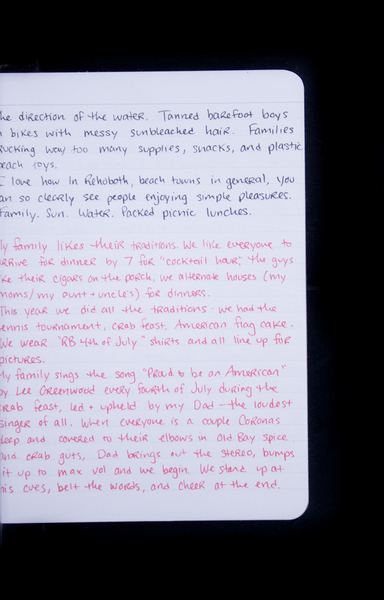 he direction of the water. Tanned barefoot boys
n bikes with messy sunbleached hair. Families
ucking way too many supplies, snacks, and plastic
each toys.
I love how in Rehoboth, beach towns in general, you
an so clearly see people enjoying simple pleasures.
Family. Sun. Water. Packed picnic lunches.
My family likes their traditions. We like everyone to
arrive for dinner by 7 for "cocktail hour", the guys
ke their cigars on the porch, we alternate houses (my
moms/my aunt + uncle's) for dinners.
This year we did all the traditions - we had the
ennis tournament, crab feast, American flag cake.
We wear "RB 4th of July" shirts and all line up for
pictures.
My family sings the song "Proud to be an American"
by Lee Greenwood every fourth of July during the
crab feast, led + upheld by my Dad - the loudest
singer of all. When everyone is a couple Coronas
deep and covered to their elbows in Old Bay spice
and crab guts, Dad brings out the stereo, bumps
it up to max vol and we begin. We stand up at
his cues, belt the words, and cheer at the end.